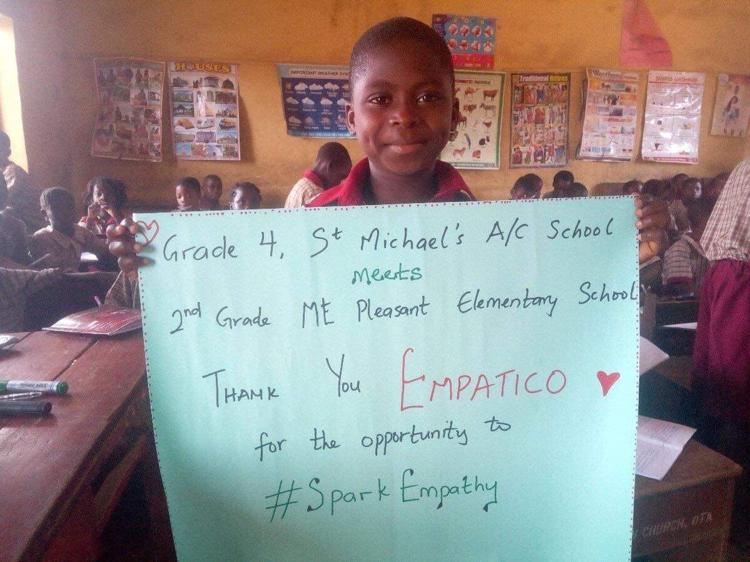 HOUSES
Traditional Rulers
Grade 4, St Michael's A/C School
meets
2nd Grade Mt Pleasant Elementary School
THANK You EMPATICO
for the opportunity to
#Spark Empathy
CHURCH, OTA